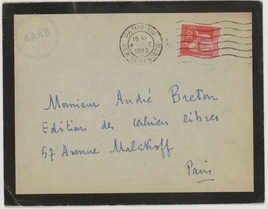 AAAB
PARIS
1933
Monsieur André Breton
Editions des Cahiers libres
57 Avenue Malakoff
Paris